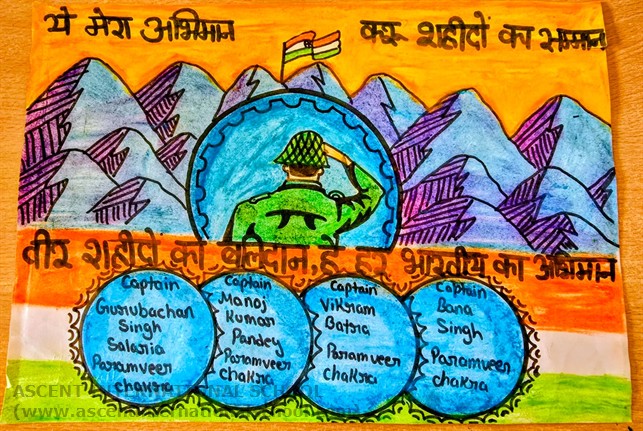 ये मेरा अभिमान
करू शहीदों का सम्मान
वीर शहीदों का बलिदान, है हर भारतीय का अभिमान
Captain
Gurubachan
Singh
Salaria
Paramveer
chakra
Captain
Manoj
Kumar
Pandey
Paramveer
chakra
Captain
Vikram
Batra
Paramveer
chakra
Captain
Bana
Singh
Paramveer
chakra
ASCENT INTERNATIONAL SCHOOL